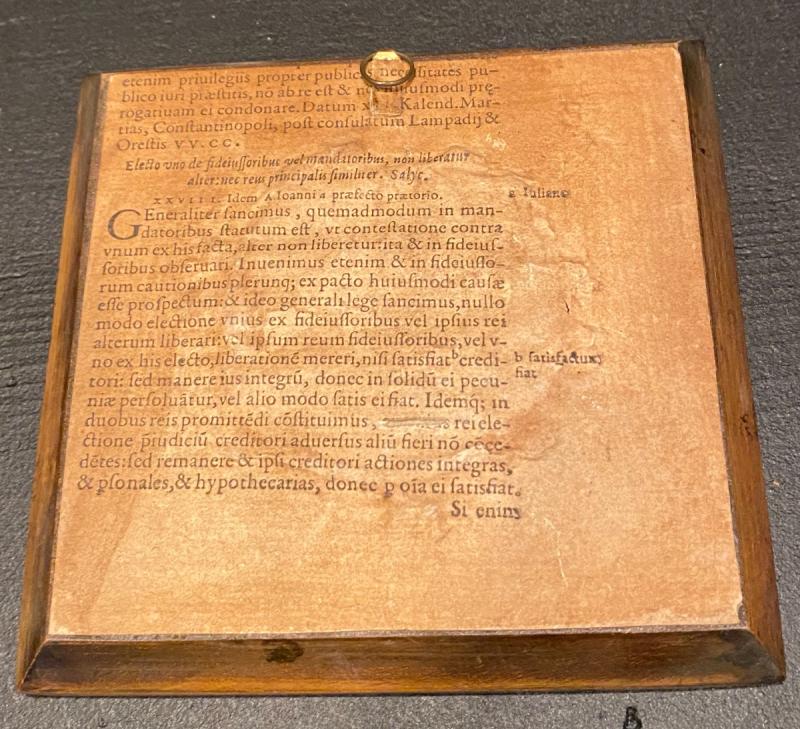 etenim priuilegiis propter publicas necessitates pu-
blico iuri præstitis, nō ab re est & huiusmodi prę-
rogatiuam ei condonare. Datum Kalend. Mar-
tias, Constantinopoli, post consulatum Lampadij &
Orestis VV. CC.
Electo vno de fideiussoribus vel mandatoribus, non liberatur
alter: nec reus principalis similiter. Salyc.
XXVIII. Idem A. Ioanni a præfecto prætorio.
a Iuliano
GEneraliter sancimus, quemadmodum in man-
datoribus statutum est, vt contestatione contra
vnum ex his facta, alter non liberetur: ita & in fideius-
soribus obseruari. Inuenimus etenim & in fideiusso-
rum cautionibus plerunq; ex pacto huiusmodi causæ
esse prospectum: & ideo generali lege sancimus, nullo
modo electione vnius ex fideiussoribus vel ipsius rei
alterum liberari: vel ipsum reum fideiussoribus, vel v-
no ex his electo, liberationē mereri, nisi satisfiat b credi-
b satisfactum
fiat
tori: sed manere ius integrū, donec in solidū ei pecu-
niæ persoluātur, vel alio modo satis ei fiat. Idemq; in
duobus reis promittēdi cōstituimus, rei ele-
ctione p̄iudiciū creditori aduersus aliū fieri nō cōce-
dētes: sed remanere & ipsi creditori actiones integras,
& p̱sonales, & hypothecarias, donec p̱ oīa ei satisfiat.
Si enim
B